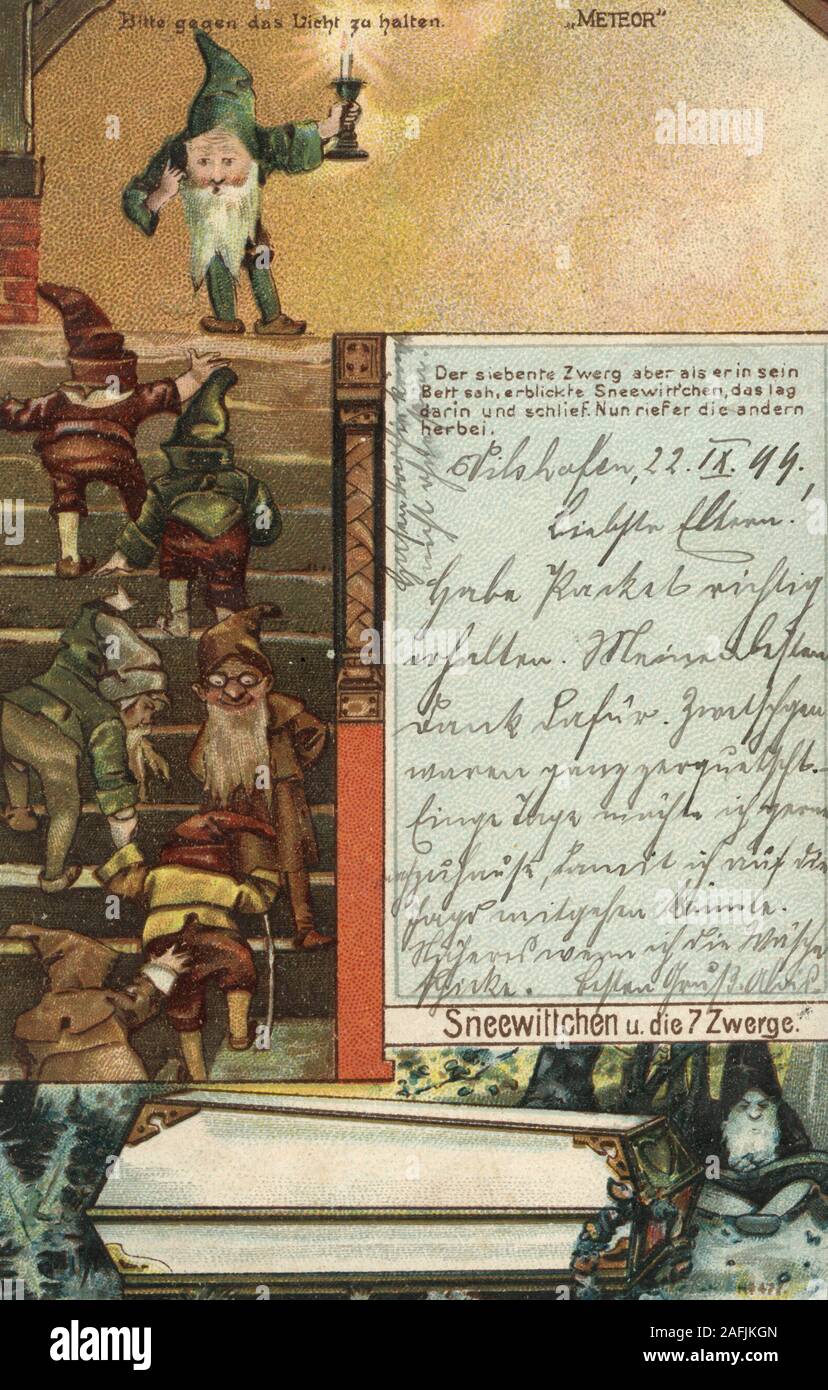 Bitte gegen das Licht zu halten.
„METEOR"
Der siebente Zwerg aber als er in sein
Bett sah, erblickte Sneewittchen, das lag
darin und schlief. Nun rief er die andern
herbei.
Vilshofen, 22. IX. 99.
Liebste Eltern!
Habe Packet richtig
erhalten. Meinen besten
Dank dafür. Zwetschgen
waren ganz zerquetscht.
Einge Tage möchte ich gerne
zuhause, damit ich auf die
Jagd mitgehen könnte.
Näheres wenn ich die Wäsche
schicke. Besten Gruß. Alois
Sneewittchen u. die 7 Zwerge.
a
alamy
Image ID: 2AFJKGN
www.alamy.com